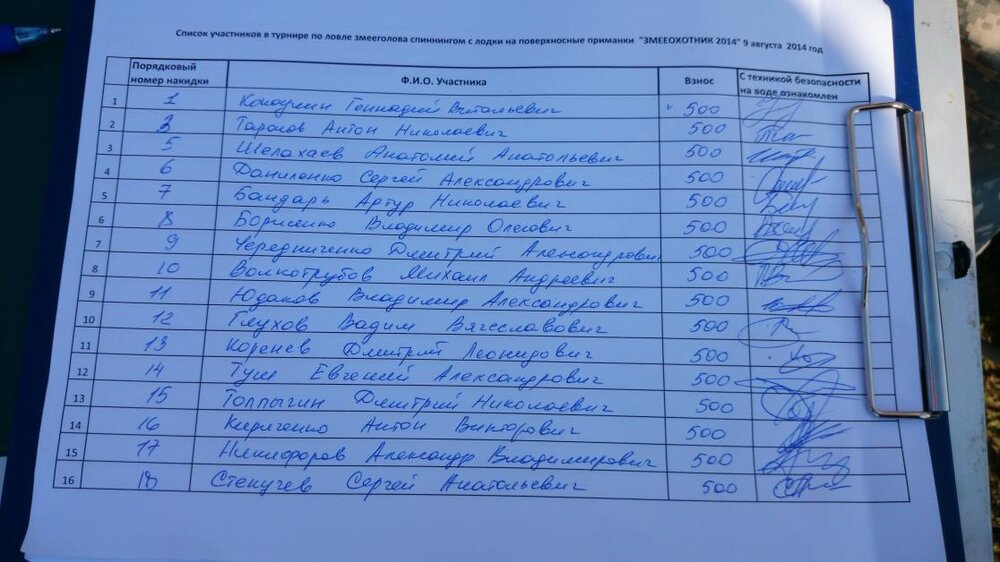 Список участников в турнире по ловле змееголова спиннингом с лодки на поверхносные приманки "ЗМЕЕОХОТНИК 2014" 9 августа 2014 год
Порядковый номер накидки Ф.И.О. Участника Взнос С техникой безопасности на воде ознакомлен
1 1 Геннадий Витальевич 500
2 3 Антон Николаевич 500
3 5 Шелахаев Анатолий Анатольевич 500
4 6 Даниленко Сергей Александрович 500
5 7 Бандарь Артур Николаевич 500
6 8 Борисенко Владимир Олегович 500
7 9 Чередниченко Дмитрий Александрович 500
8 10 Волкотрубов Михаил Андреевич 500
9 11 Юдаков Владимир Александрович 500
10 12 Глухов Вадим Вячеславович 500
11 13 Коренев Дмитрий Леонидович 500
12 14 Туш Евгений Александрович 500
13 15 Толпыгин Дмитрий Николаевич 500
14 16 Кириченко Антон Викторович 500
15 17 Никифоров Александр Владимирович 500
16 18 Сергей Анатольевич 500